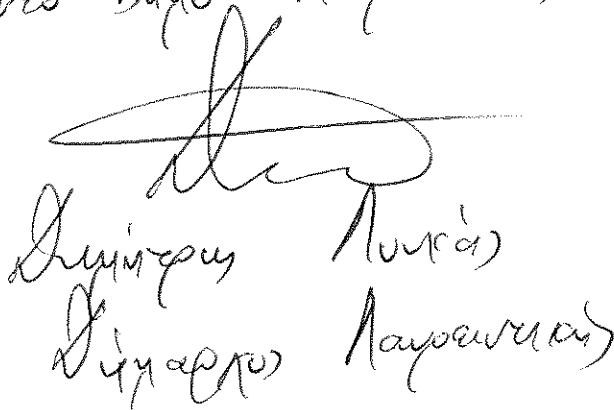 στο Δήμο
Δημήτρης Λουκάς
Δήμαρχος Λαυρεωτικής